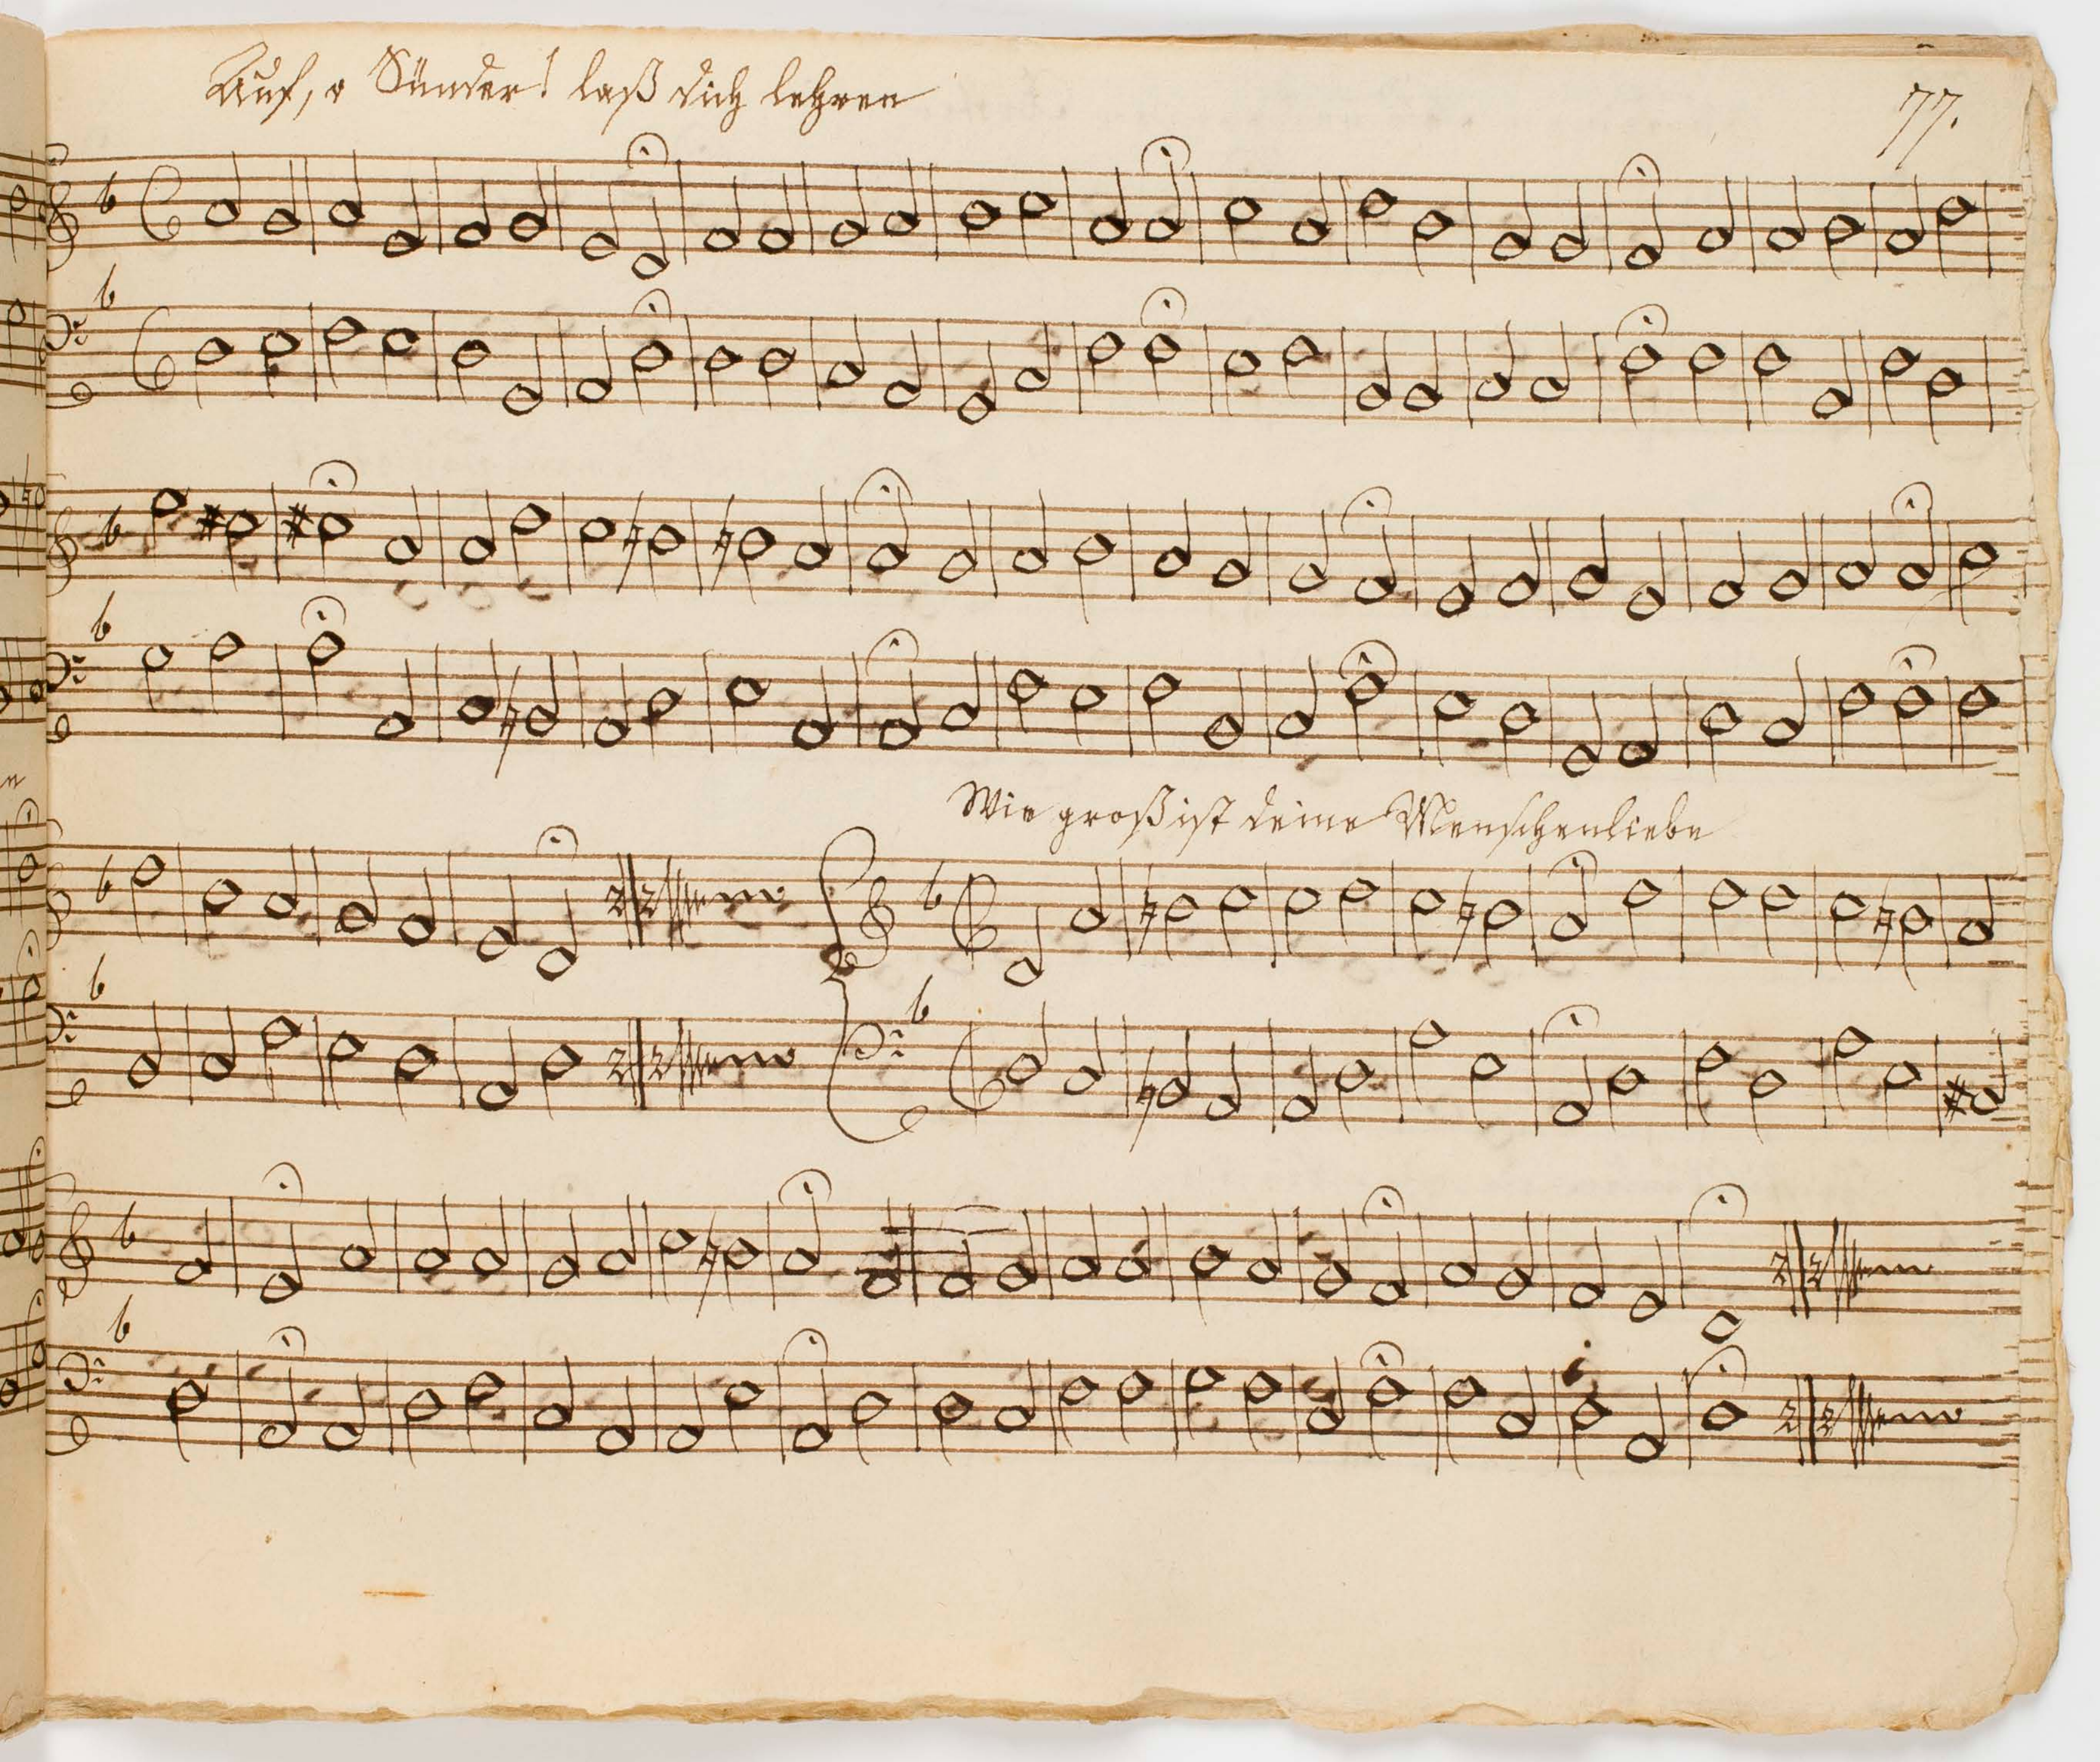 Auf, o Sünder! laß dich lehren
77.
Wie groß ist deine Menschenliebe